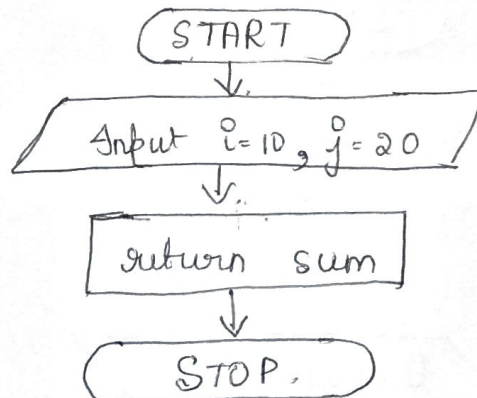 START
Input i=10, j=20
return sum
STOP.